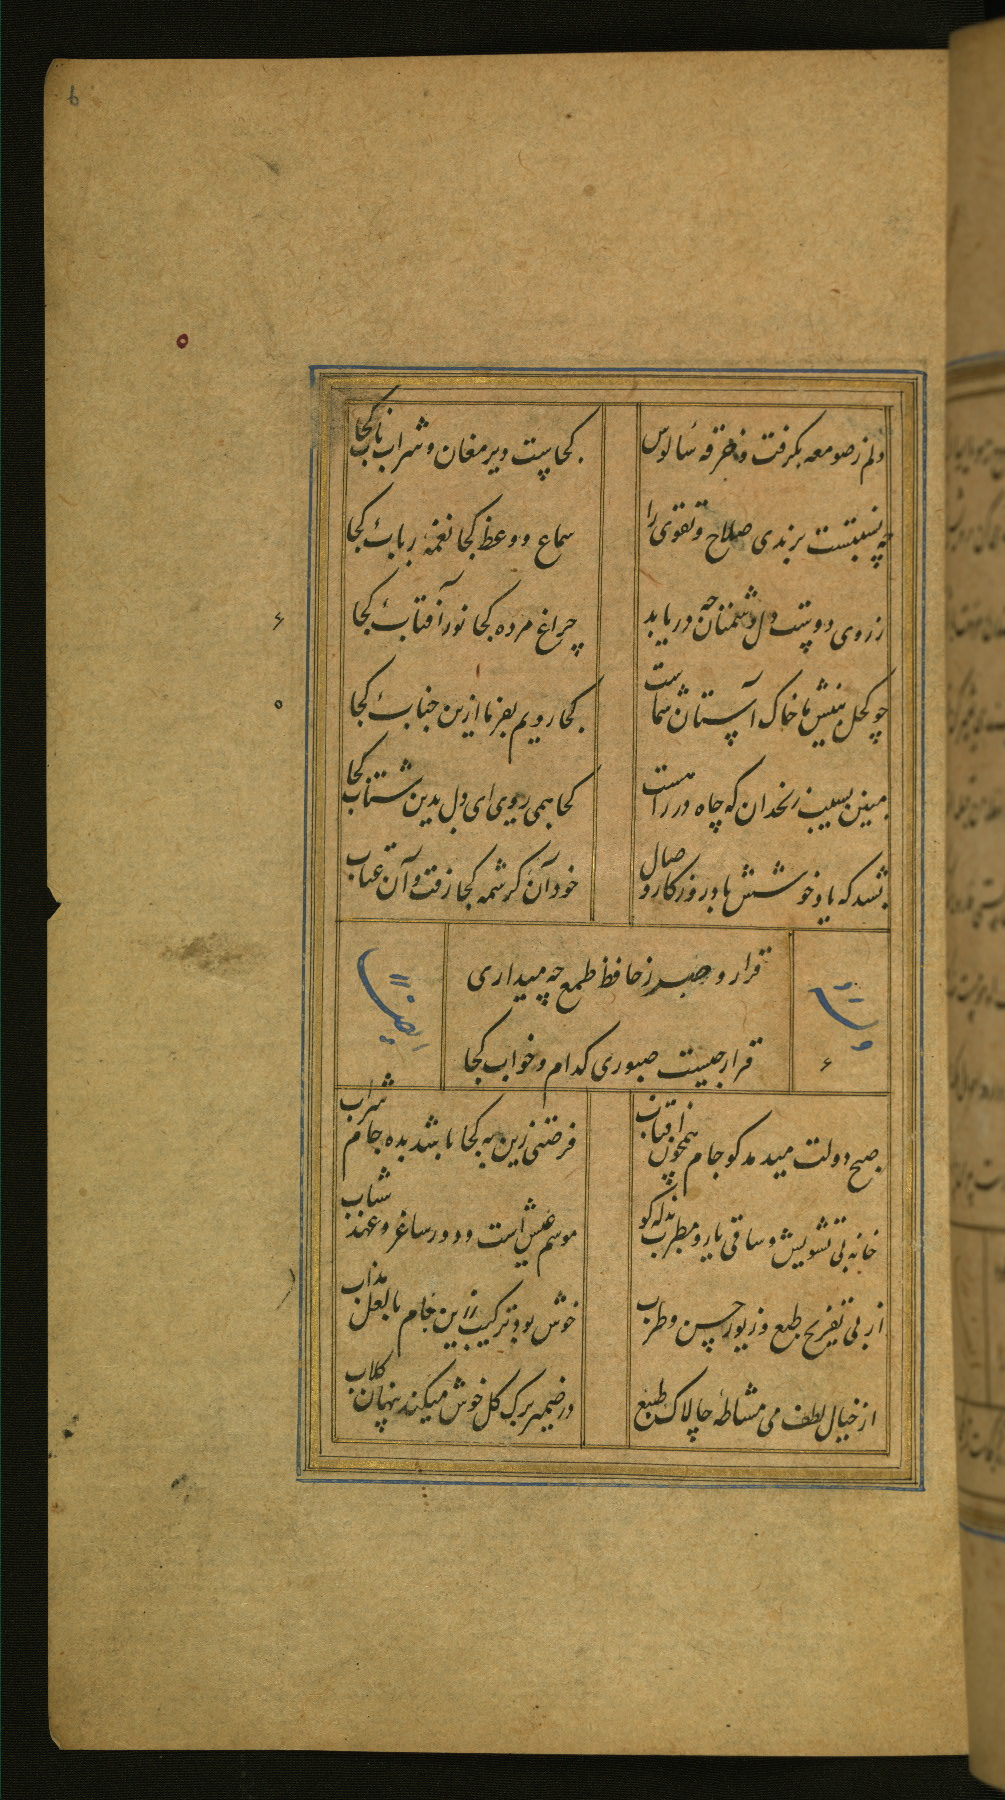 دلم ز صومعه بگرفت و خرقه سالوس
کجاست دیر مغان و شراب ناب کجا
چه نسبتست برندی صلاح و تقوی را
سماع و وعظ کجا نغمهٔ رباب کجا
ز روی دوست دل دشمنان چه دریابد
چراغ مرده کجا نور آفتاب کجا
چو کحل بینش ما خاک آستان شماست
کجا رویم بفرما ازین جناب کجا
مبین بسیب زنخدان که چاه در راهست
کجا همی روی ای دل بدین شتاب کجا
بشد که یاد خوشش باد روزکار وصال
خود آن کرشمه کجا رفت و آن عتاب
قرار و صبر ز حافظ طمع چه میداری
قرار چیست صبوری کدام و خواب کجا
وله
ایضا
۶
صبح دولت میدمد کو جام همچون افتاب
فرصتی زین به کجا باشد بده جام شراب
خانه بی تشویش و ساقی یار و مطرب بذله کو
موسم عیش است و دور ساغر و عهد شباب
از پی تفریح طبع و زیور حسن و طرب
خوش بود ترکیب زرین جام با لعل مذاب
از خیال لطف می مشاطهٔ چالاک طبع
در ضمیر برک کل خوش میکند پنهان کلاب